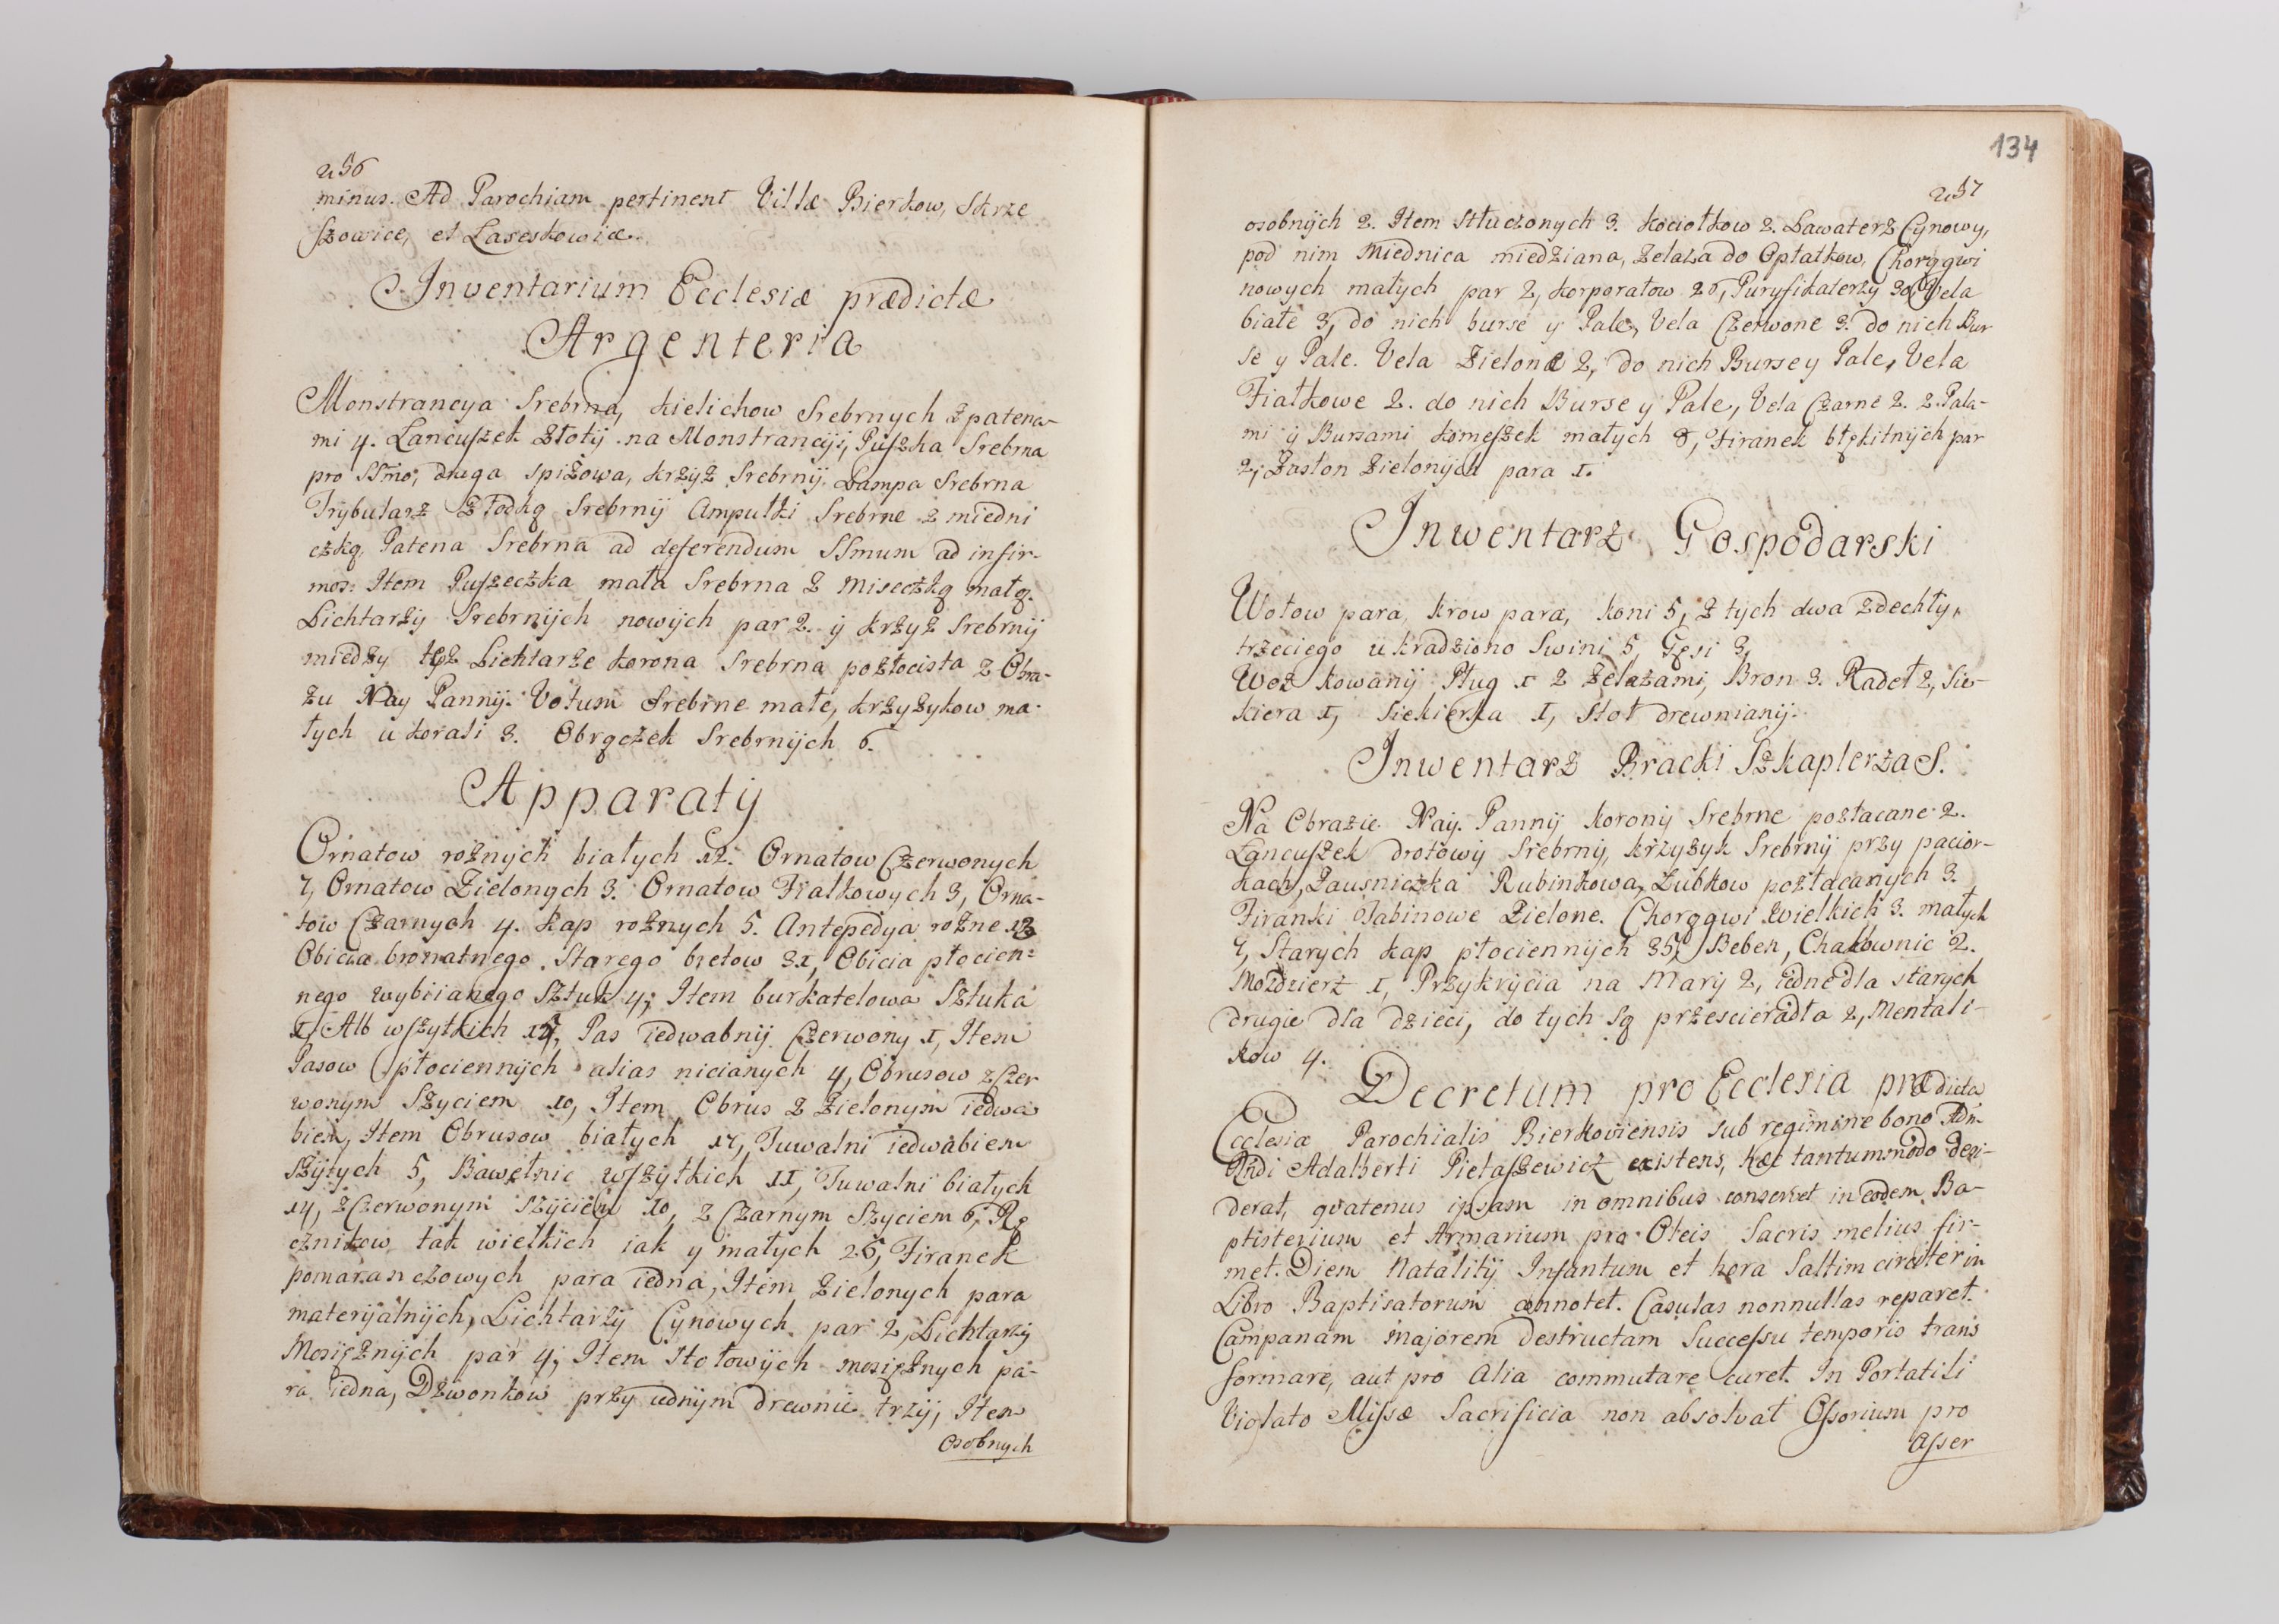 256
minus. Ad Parochiam pertinent Villæ Bierkow, Skrze
szowice, et Laseskowiæ.
Inventarium Ecclesiæ prædictæ
Argenteria
Monstrancya Srebrna, kielichow Srebrnych z patena-
mi 4. Lancuszek złotÿ na Monstrancÿi, Puszka Srebrna
pro SSmo, druga spiżowa, krzÿż Srebrnÿ. Lampa Srebrna
Trÿbularz z łodką Srebrnÿ Ampułki Srebrne z miedni
czką, Patena Srebrna ad deferendum SSmum ad infir-
mos. Item Puszeczka mała Srebrna z Miseczką małą.
Lichtarzÿ Srebrnÿch nowÿch par 2. ÿ krzyż Srebrnÿ
miedzy też Lichtarze korona Srebrna pozłocista z Obra-
zu Nay Pannÿ. Votum Srebrne małe, krzyzykow ma-
łych u korali 3. Obrączek Srebrnÿch 6.
Apparatÿ
Ornatow rożnÿch białych 12. Ornatow Czerwonych
7, Ornatow Zielonych 3. Ornatow Fiałkowych 3, Orna-
tow Czarnych 4. kap rożnych 5. Antepedya rożne 13
Obicia bronatnego Starego bretow 31, Obicia płocien=
nego wybiianego Sztuk 4, Item burkatelowa Sztuka
1, Alb wszytkich 17, Pas iedwabnÿ Czerwony 1, Item
Pasow płociennÿch alias nicianych 4, Obrusow z Czer
wonym Szyciem 10, Item Obrus z Zielonym iedwa
biem, Item Obrusow białych 17, Tuwalni iedwabiem
Szÿtych 5, Bawełnic wszytkich 11, Tuwalni białych
14, z Czerwonym Szÿciem 10, z Czarnym Szyciem 6, Rę
cznikow tak wielkich iak y małych 26, Firanek
pomaranczowych para iedna, Item Zielonych para
materÿalnÿch, Lichtarzÿ Cÿnowych par 2, Lichtarzÿ
Mosiężnÿch par 4, Item Stołowÿch mosiężnych pa-
ra iedna, Dzwonkow przy iednÿm drewnie trzÿ, Item
osobnych
134
257
osobnÿch 2. Item Stłuczonych 3. kociołkow 2. Lawaterz Cÿnowy,
pod nim Miednica miedziana, Zelaza do Opłatkow, Chorągwi
nowych małych par 2, korporałow 26, Puryfikaterzy 30, Vela
białe 3, do nich burse y Pale, Vela Czerwone 3. do nich Bur
se y Pale. Vela Zielone 2, do nich Burse y Pale, Vela
Fiałkowe 2. do nich Burse y Pale, Vela Czarne 2. z Pala-
mi ÿ Bursami komeszek małych 8, Firanek błękitnÿch par
2, Zasłon Zielonÿch para 1.
Inwentarz Gospodarski
Wołow para, krow para, koni 5, z tych dwa zdechłÿ,
trzeciego ukradziono Swini 5, Gęsi 3,
Woz kowanÿ Pług 1 z Zelazami, Bron 3. Radeł 2, Sie-
kiera 1, Siekierka 1, Stoł drewnianÿ.
Inwentarz Bracki Szkaplerza S.
Na Obrazie Nay. Pannÿ koronÿ Srebrne pozłacane 2.
Łancuszek drotowÿ Srebrnÿ, krzyzyk Srebrnÿ przy pacior-
kach, Zausniczka Rubinkowa, Zubkow pozłacanych 3.
Firanki Tabinowe Zielone. Chorągwi Wielkich 3. małych
4, Starych kap płociennÿch 35, Beben, Chałownic 2.
Mozdzierz 1, Przykrycia na Marÿ 2, iedne dla starych
drugie dla dzieci, do tych są przescieradła 2, Mentali-
kow 4.
Decretum pro Ecclesia prædicta
Ecclesia Parochialis Bierkoviensis sub regimine bono Adm
Rndi Adalberti Pietaszewicz existens, hæc tantummodo desi-
derat, quatenus ipsam in omnibus conservet in eodem Ba-
ptisterium et Armarium pro Oleis Sacris melius fir-
met. Diem Natalitÿ Infantum et hora Saltim circiter in
Libro Baptisatorum annotet. Casulas nonnullas reparet.
Campanam Majorem destructam Successu temporis trans
formare, aut pro alia commutare curet. In Portatili
Violato Missæ Sacrificia non absolvat Ossorium pro
Asser